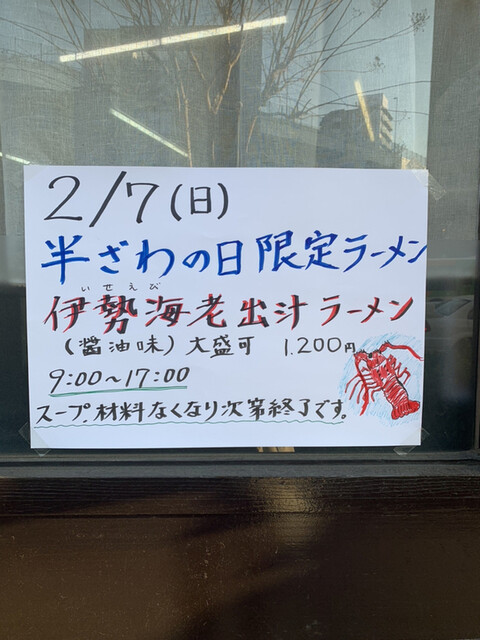 2/7(日)
半ざわの日限定ラーメン
いせえび
伊勢海老出汁ラーメン
(醤油味)大盛可 1.200円
9:00~17:00
スープ.材料なくなり次第終了です。